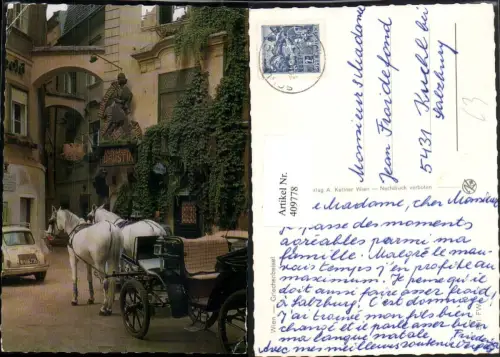 Monsieur et Madame
Jean Froidefond
5431 Kuchl bei
Salzburg
63
Artikel Nr.
409778
Verlag A. Kellner Wien — Nachdruck verboten
Wien — Griechenbeisel
Madame, cher Monsieur
je passe des moments
agréables parmi ma
famille. Malgré le mau-
vais temps j'en profite au
maximum. Je pense qu'il
doit aussi faire assez froid
à Salzburg. C'est dommage!
J'ai trouvé mon fils bien
changé et il parle assez bien
ma langue natale.
Avec mes meilleurs souvenirs